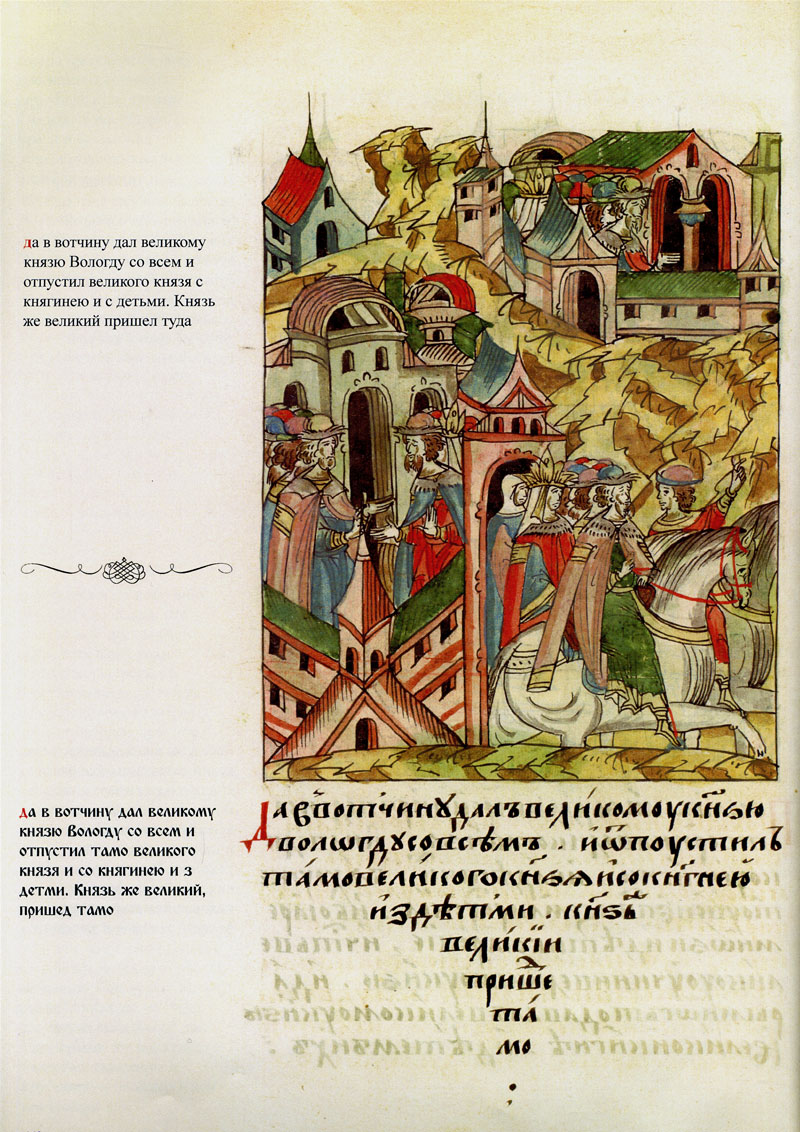 да в вотчину дал великому
князю Вологду со всем и
отпустил великого князя с
княгинею и с детьми. Князь
же великий пришел туда
да в вотчину дал великому
князю Вологду со всем и
отпустил тамо великого
князя и со княгинею и з
детми. Князь же великий,
пришед тамо
Да в̾вотчинꙋ далъ великомоу кн҃ѕю
волѡгдꙋ совсѣмъ . иѿпоустилъ
тамо великого кн҃ѕѧ исокнг҃инею
издѣтми . кн҃ѕь
великіи
прише
та
мо